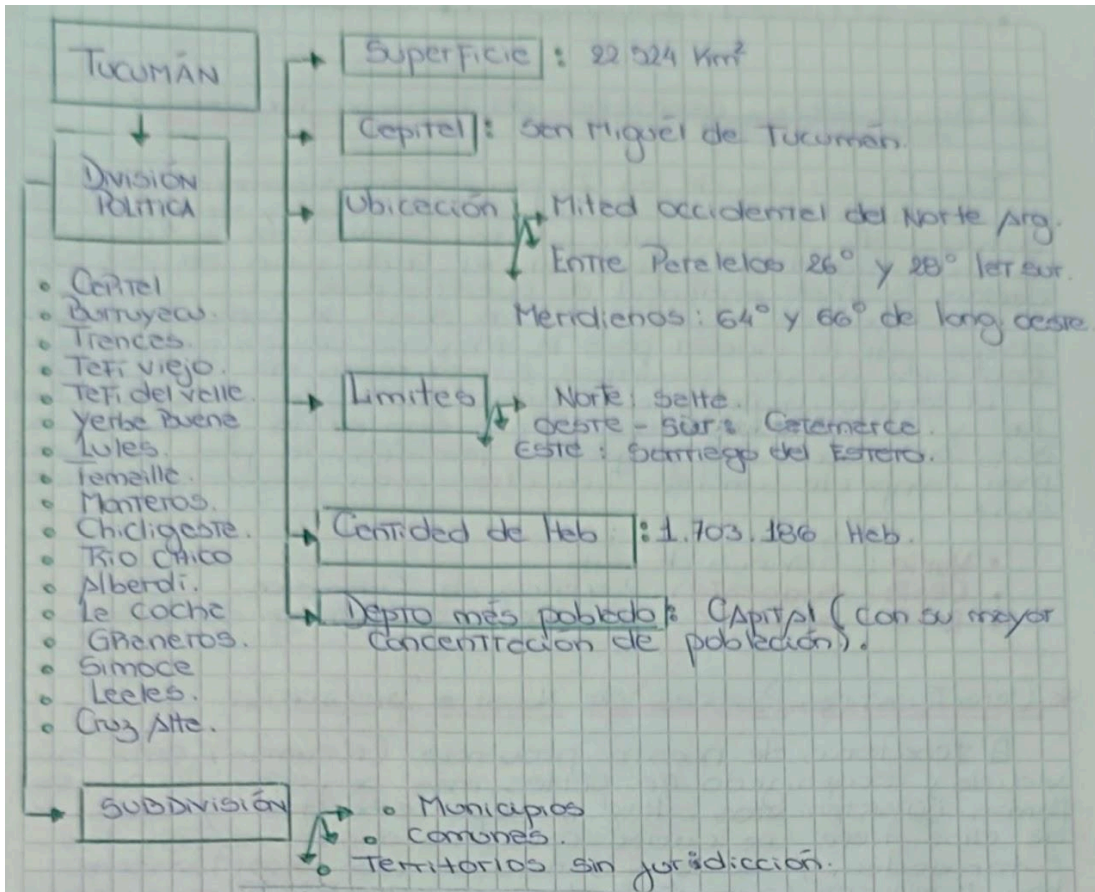 TUCUMÁN
DIVISIÓN
POLITICA
• Capital
• Burruyacu.
• Trancas.
• Tafi viejo.
• Tafi del valle.
• Yerba Buena
• Lules.
• Famaille.
• Monteros.
• Chicligasta.
• Rio CHico
• Alberdi.
• La cocha
• GRaneros.
• Simoca
• Leales.
• Cruz Alta.
SUBDIVISIÓN
• Municipios
• comunas.
• Territorios sin jurisdicción.
Superficie : 22 524 Km²
Capital : San Miguel de Tucumán.
Ubicación
Mitad occidental del Norte Arg.
Entre Paralelos 26° y 28° lat sur.
Meridianos : 64° y 66° de long oeste
Limites
Norte : Salta.
oeste - Sur : Catamarca.
ESTE : Santiago del Estero.
Cantidad de Hab : 1.703.186 Hab.
Depto más poblado : CApitAl (con su mayor
concentración de población).